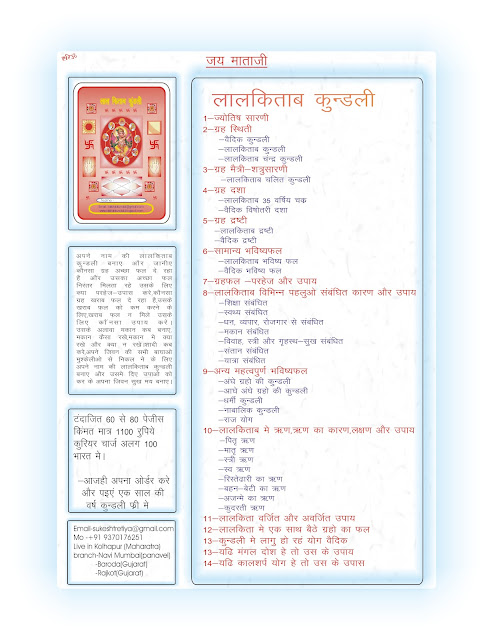 जय माताजी
लाल किताब कुंडली
अपने नाम की लालकिताब
कुण्डली बनाए और जानीए
कौनसा ग्रह अच्छा फल दे रहा
है और उसका अच्छा फल
निरंतर मिलता रहे उसके लिए
क्या परहेज–उपाय करे,कौनसा
ग्रह खराब फल दे रहा है,उसके
खराब फल को कम करने के
लिए,खराब फल न मिले उसके
लिए कौनसा उपाय करे।
उसके अलावा मकान कब बनाए,
मकान कैसा रखे,मकान मे क्या
रखे और क्या न रखे,शादी कब
करे,अपने जिवन की सभी बाधाओ
मुश्केलीओ से निकल ने के लिए
अपने नाम की लालकिताब कुन्डली
बनाए और उसमे दिए उपाओ को
कर के अपना जिवन सुख मय बनाए।
टंदाजित 60 से 80 पेजीस
किंमत मात्र 1100 रुपिये
कुरियर चार्ज अलग 100
भारत मे।
–आजही अपना ओर्डर करे
और पइए एक साल की
वर्ष कुन्डली फ्री मे
Email-sukeshtretiya@gmail.com
Mo -+91 9370176251
Live in Kolhapur (Maharatra)
branch-Navi Mumbai(panavel)
-Baroda(Gujarat)
-Rajkot(Gujarat)
लालकिताब कुन्डली
1–ज्योतिष सारणी
2–ग्रह स्थिती
–वैदिक कुन्डली
–लालकिताब कुन्डली
–लालकिताब चंद्र कुन्डली
3–ग्रह मैत्री–शत्रुसारणी
–लालकिताब चलित कुन्डली
4–ग्रह दशा
–लालकिताब 35 वर्षिय चक्र
–वैदिक विषोतरी दशा
5–ग्रह द्रष्टी
–लालकिताब द्रष्टी
–वैदिक द्रष्टी
6–सामान्य भविष्यफल
–लालकिताब भविष्य फल
–वैदिक भविष्य फल
7–ग्रहफल –परहेज और उपाय
8–लालकिताब विभिन्न पहलुओ संबंधित कारण और उपाय
–शिक्षा संबंधित
–स्वथ्य संबंधित
–धन, व्यपार, रोजगार से संबंधित
–मकान संबंधित
–विवाह, स्त्री और गृहस्थ–सुख संबंधित
–संतान संबंधित
–यात्रा संबंधित
9–अन्य महत्वपुर्ण भविष्यफल
–अंधे ग्रहो की कुन्डली
–आधे अंधे ग्रहो की कुन्डली
–धर्मी कुन्डली
–नाबालिक कुन्डली
–राज योग
10–लालकिताब मे ऋण,ऋण का कारण,लक्षण और उपाय
–पितृ ऋण
–मातृ ऋण
–स्त्री ऋण
–स्व ऋण
–रिस्तेदारी का ऋण
–बहन–बेटी का ऋण
–अजन्मे का ऋण
–कुदरती ऋण
11–लालकिता वर्जित और अवर्जित उपाय
12–लालकिता मे एक साथ बैठे ग्रहो का फल
13–कुन्डली मे लागु हो रहं योग वैदिक
13–यढि मंगल दोश हे तो उस के उपाय
14–यढि कालशर्प योग हे तो उस के उपास